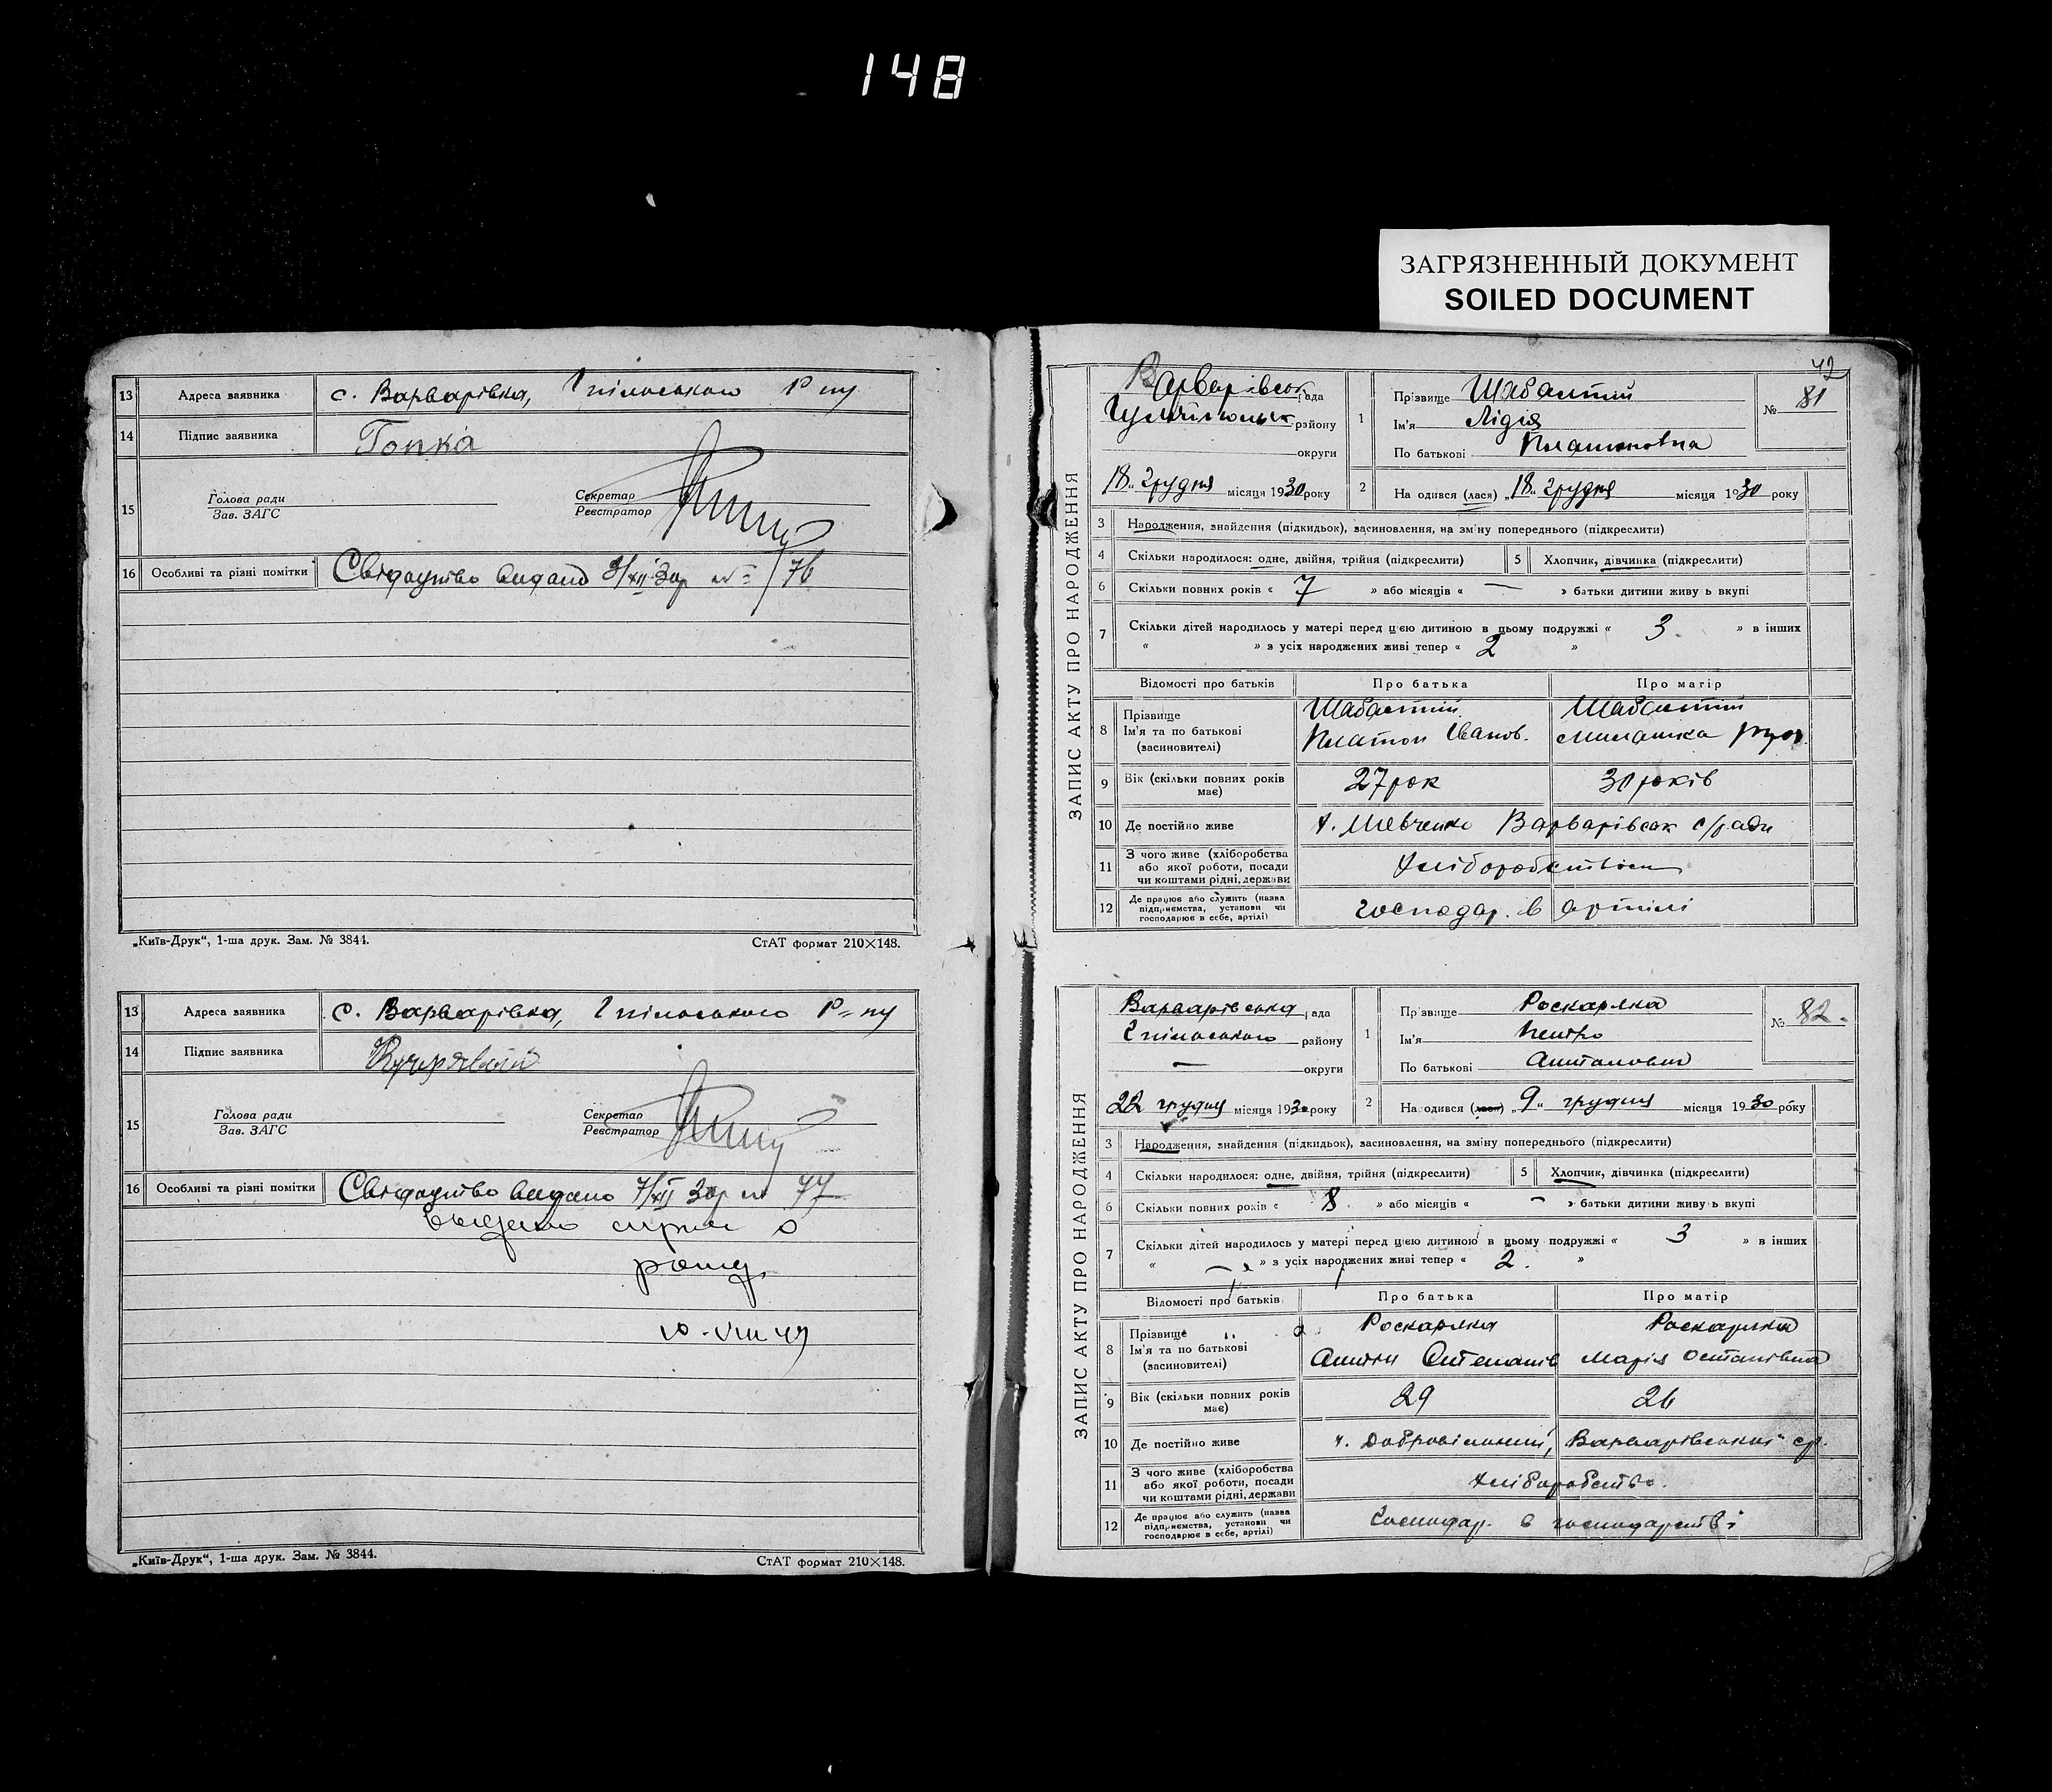 148
ЗАГРЯЗНЕННЫЙ ДОКУМЕНТ
SOILED DOCUMENT
13 Адреса заявника с. Варварівка,
14 Підпис заявника Гопка
15 Голова ради
Зав. ЗАГС
Секретар
Реєстратор
16 Особливі та різні помітки Свідоцтво видано 9/XII-30р № 76
„Київ-Друк“, 1-ша друк. Зам. № 3844.
СтАТ формат 210×148.
13 Адреса заявника с. Варварівка,
14 Підпис заявника Кучерявый
15 Голова ради
Зав. ЗАГС
Секретар
Реєстратор
16 Особливі та різні помітки Свідоцтво видано 7/XII 30р № 77
10-VIII 47
„Київ-Друк“, 1-ша друк. Зам. № 3844.
СтАТ формат 210×148.
42
ЗАПИС АКТУ ПРО НАРОДЖЕННЯ
Варварівськ ради
району
округи
18 грудня місяця 1930 року
1 Прізвище
Ім'я Лідія
По батькові Платоновна
№ 81
2 Народився (лася) „18“ грудня місяця 1930 року
3 Народження, знайдення (підкидьок), засиновлення, на зміну попереднього (підкреслити)
4 Скільки народилося: одне, двійня, трійня (підкреслити)
5 Хлопчик, дівчинка (підкреслити)
6 Скільки повних років « 7 » або місяців « — » батьки дитини живуть вкупі
7 Скільки дітей народилось у матері перед цією дитиною в цьому подружжі « 3. » в інших
« » з усіх народжених живі тепер « 2 »
Відомості про батьків Про батька Про матір
8 Прізвище
Ім'я та по батькові Платон Іванов.
(засновителі)
9 Вік (скільки повних років має) 27 рок
10 Де постійно живе х. Шевченко Варварівськ с/ради
11 З чого живе (хліборобства
або якої роботи, посади
чи коштами рідні, держави Хліборобством
12 Де працює або служить (назва
підприємства, установи чи
господарює в себе, артілі) господар. в артілі
ЗАПИС АКТУ ПРО НАРОДЖЕННЯ
Варварівська рада
району
— округи
22 грудня місяця 1930 року
1 Прізвище Роскаряка
Ім'я Петро
По батькові Антонович
№ 82.
2 Народився (лася) „9“ грудня місяця 1930 року
3 Народження, знайдення (підкидьок), засиновлення, на зміну попереднього (підкреслити)
4 Скільки народилося: одне, двійня, трійня (підкреслити)
5 Хлопчик, дівчинка (підкреслити)
6 Скільки повних років « 8 » або місяців « — » батьки дитини живуть вкупі
7 Скільки дітей народилось у матері перед цією дитиною в цьому подружжі « 3 » в інших
« — » з усіх народжених живі тепер « 2. »
Відомості про батьків Про батька Про матір
8 Прізвище Роскаряка Роскаряка
Ім'я та по батькові Антон Марія Остапівна
(засиновителі)
9 Вік (скільки повних років має) 29 26
10 Де постійно живе Варварівської ср.
11 З чого живе (хліборобства
або якої роботи, посади
чи коштами рідні, держави Хліборобство.
12 Де працює або служить (назва
підприємства, установи чи
господарює в себе, артілі) Господар. в господарстві